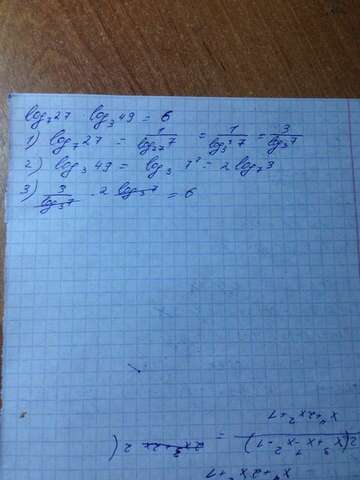 log₇27 · log₃49 = 6
1) log₇27 = 1/log₂₇7 = 1/log₃³7 = 3/log₃7
2) log₃49 = log₃ 7² = 2log₇3
3) 3/log₃7 · 2 log₃7 = 6
x⁴+2x²+1